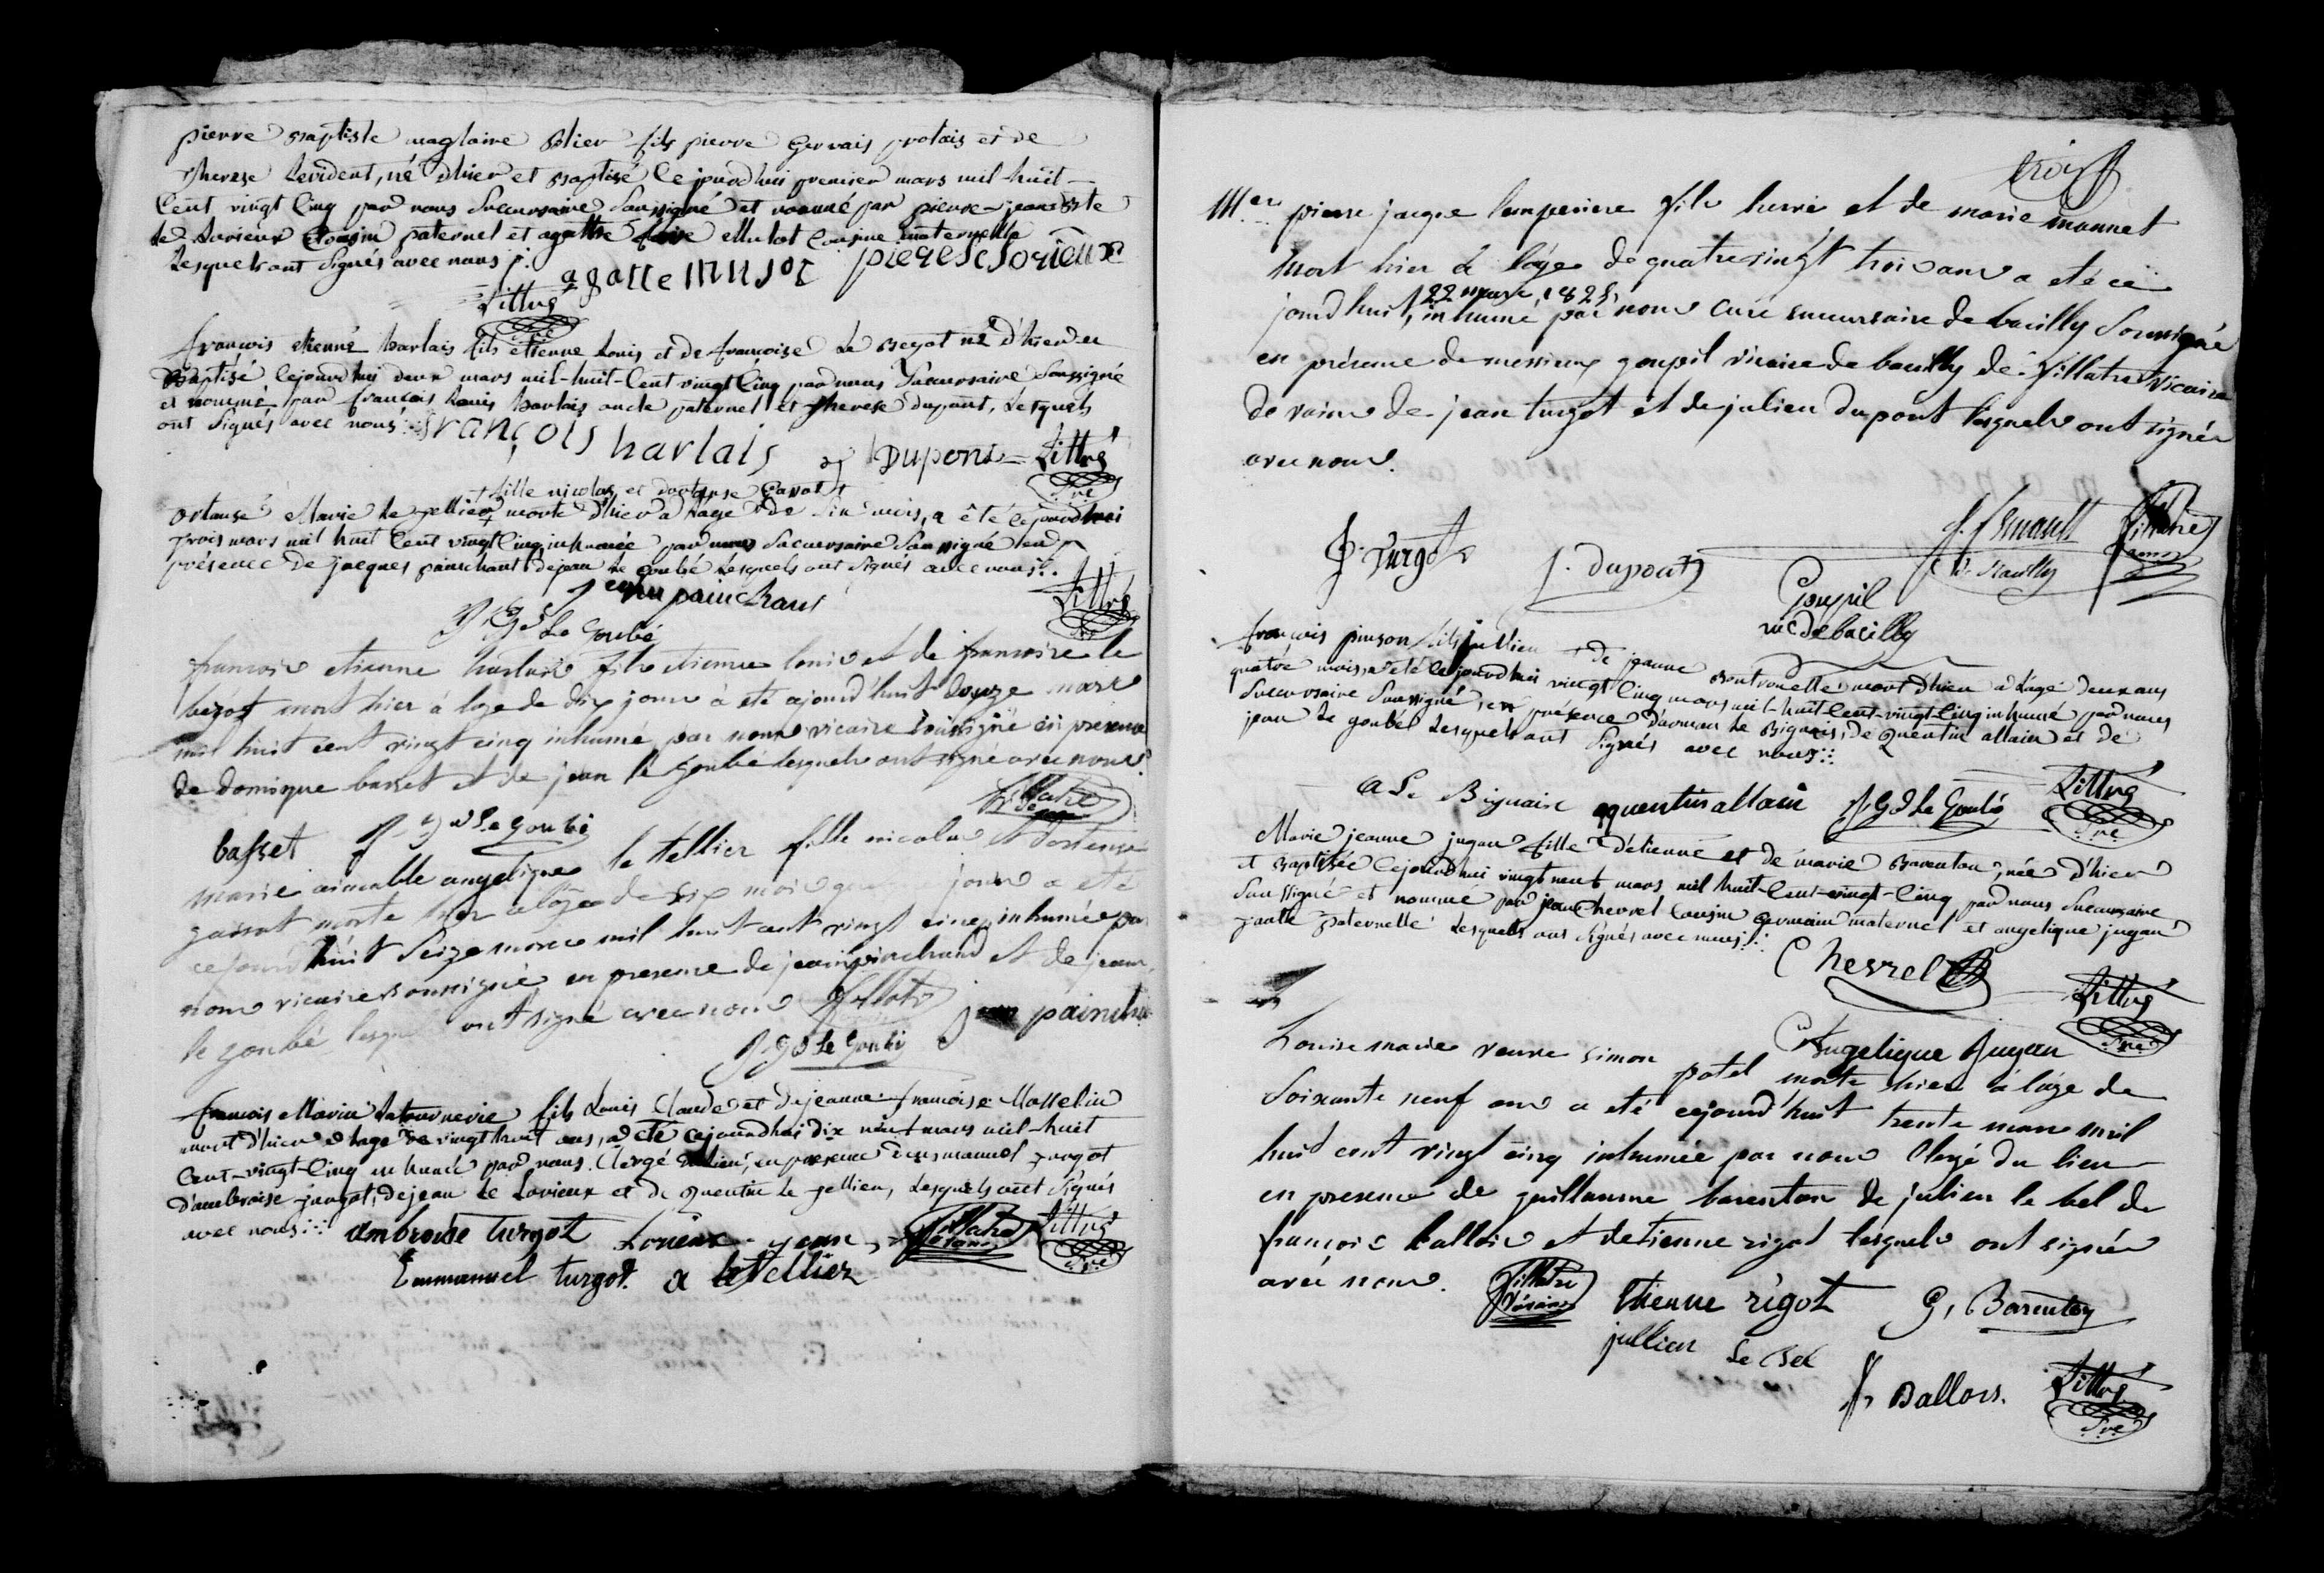 pierre Baptiste maglaire Potier fils pierre Gervais protais et de
Therese Levident, né d'hier et Baptisé Ce jourdhui premier mars mil huit-
Cent vingt Cinq par nous Succursaire Soussigné et nommé par pierre-jean Bte
Le Lorieux Cousin paternel et agathe Mutot Cousine maternelle
Lesquels ont Signés avec nous
agatte Mutot pierre Lesorieux
Littré
françois etienné harlais fils etienne Louis et de françoise Le Begot né d'hier et
Baptisé, Cejourdhui deux mars mil-huit-Cent vingt Cinq par nous Succursaire Soussigné
et nommé par françois Louis harlais oncle paternel et Therese dupont, Lesquels
ont Signés avec nous
françois harlais DuponT Littré
Sre
+ fille nicolas et dortense Gavat +
Ortanse Marie Le Tellier + morte d'hier a Lage de Six mois, a été Cejourdhui
Trois mars mil huit Cent vingt Cinq inhumée par nous Succursaire Soussigné en
présence de jacques painchant dejean Le Goubé Lesquels ont Signés avec nous
jean painchant Littré
Sre
J. Gd Le Goubé
françois etienne harlais fils etienne louis et de françoise le
bégot mort hier à l'age de dix jours à été cejourd'huit douze mars
mil huit cent vingt cinq inhumé par nous vicaire soussigné en presence
de domique basset et de jean le goubé lesquels ont signé avec nous
basset J. Gd Le Goubé
marie aimable angelique le tellier fille nicolas et d'ortense
gavat morte hier a l'age de six mois jours a eté
cejourd'huit Seize mars mil huit cent vingt cinq inhumée par
nous vicaire soussigné en presence de jean painchand et de jean
le goubé lesquels ont signé avec nous jean painchant
J. Gd Le Goubé
françois Marin Latournerie fils Louis Claude et dejeanne-françoise Masselin
mort d'hier a Lage de vingt huit ans, a été Cejourdhui dix neuf mars mil-huit
Cent-vingt-Cinq inhumé par nous Clergé du lieu, en presence d'emmanuel turgot
d'ambroise turgot, dejean Le Lorieux et de quentin Le Tellier, Lesquels ont Signés
avec nous ambroise turgot Lorieux jean Littré
Sre
Emmanuel turgot. q letellier
trois
Mer pierre jacque lemperiere fils hervé et de marie mannet
mort hier à l'age de quatre vingt trois ans a eté ce
jourd'huit, 22 mars 1825, inhumé par nous curé succursaire de bacilly Soussigné
en présence de messieurs goupil vicaire de bacilly de fillatre vicaire
de vains de jean turgot et de julien dupont lesquels ont signés
avec nous.
J. Turgot J. dupont
Goupil
vic de bacilly
françois pinson fils jullien et de jeanne Bontrouelle mort d'hier a l'age deux ans
quatre mois a été Cejourdhui vingt Cinq mars mil-huit-Cent-vingt-Cinq inhumé par nous
Succursaire Soussigné, en présence d'arman Le Bignais, de Quentin allain et de
jean Le goubé Lesquels ont Signés avec nous
a Le Bignaix quentin allain J. Gd Le Goubé Littré
Sre
Marie jeanne jugan fille d'etienne et de marie Barenton, née d'hier
et Baptisée Cejourdhui vingt neuf mars mil huit-Cent-vingt-Cinq par nous Succursaire
Soussigné et nommé par jean Chevrel Cousin germain maternel et angelique jugan
tante paternelle Lesquels ont Signés avec nous
Chevrel
Littré
Sre
Angelique Jugan
Louise marie veuve simon potel morte hier à l'age de
soixante neuf ans a eté cejourd'huit trente mars mil
huit cent vingt cinq inhumée par nous Clergé du lieu
en presence de guillaume barenton de julien le bel de
françois ballois et detienne rigot lesquels ont signés
avec nous. Etienne rigot G, Barenton
jullien Le Bel
f, Ballois. Littré
Sre